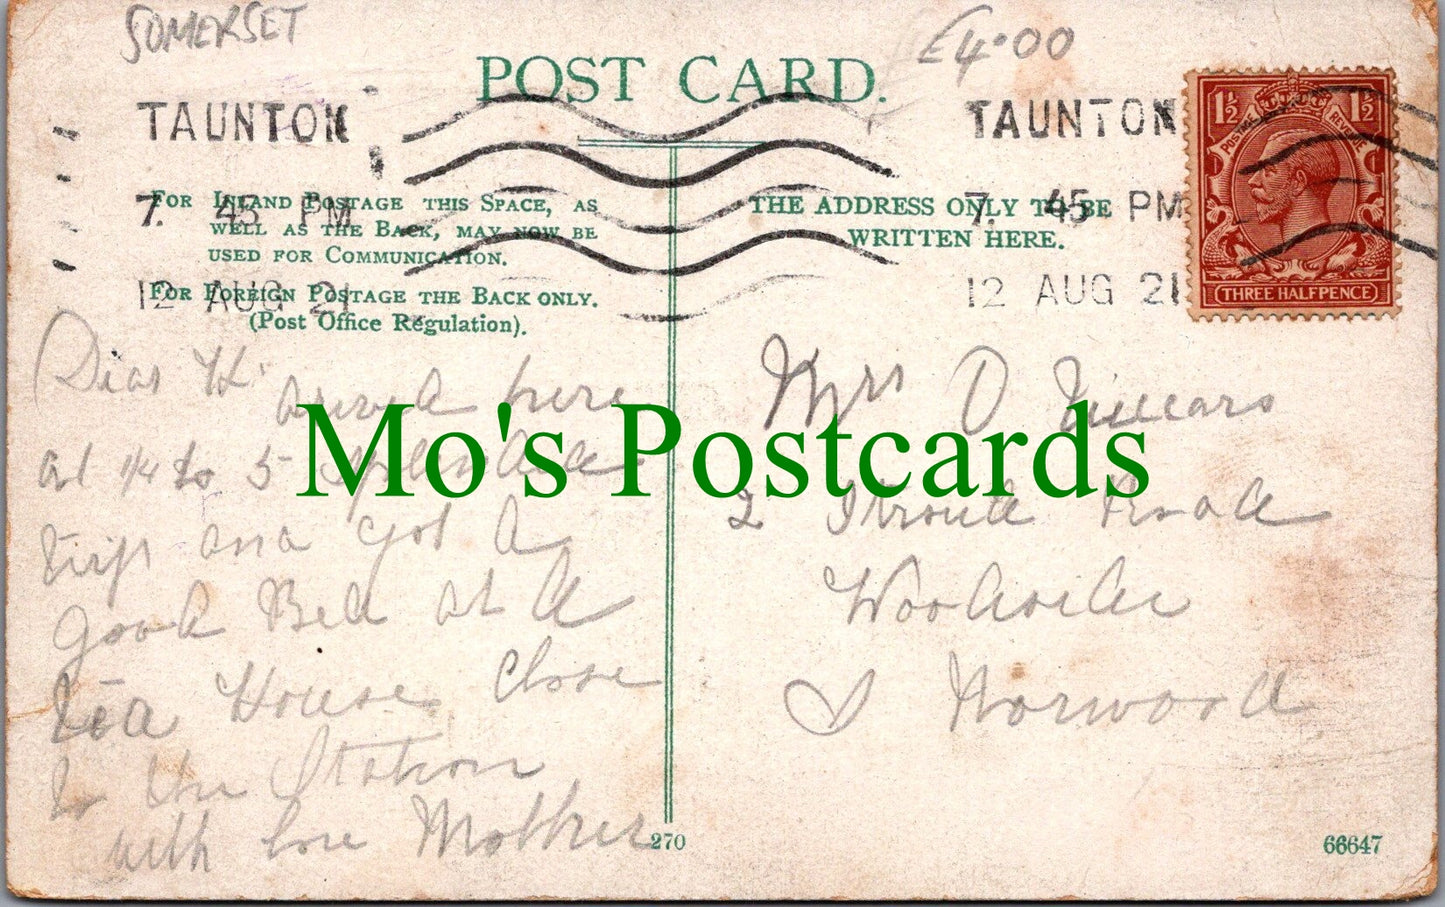 SOMERSET
£4.00
POST CARD.
TAUNTON
7. 45 PM
12 AUG 21
TAUNTON
7. 45 PM
12 AUG 21
1½ 1½
POSTAGE REVENUE
THREE HALFPENCE
FOR INLAND POSTAGE THIS SPACE, AS
WELL AS THE BACK, MAY NOW BE
USED FOR COMMUNICATION.
FOR FOREIGN POSTAGE THE BACK ONLY.
(Post Office Regulation).
THE ADDRESS ONLY TO BE
WRITTEN HERE.
Dear H.
arived here
at 1/4 to 5
trip and got A
good Bed at A
Tea House Close
to the Station
with love Mother
Mrs
2 Road
Norwood
Mo's Postcards
270
66647